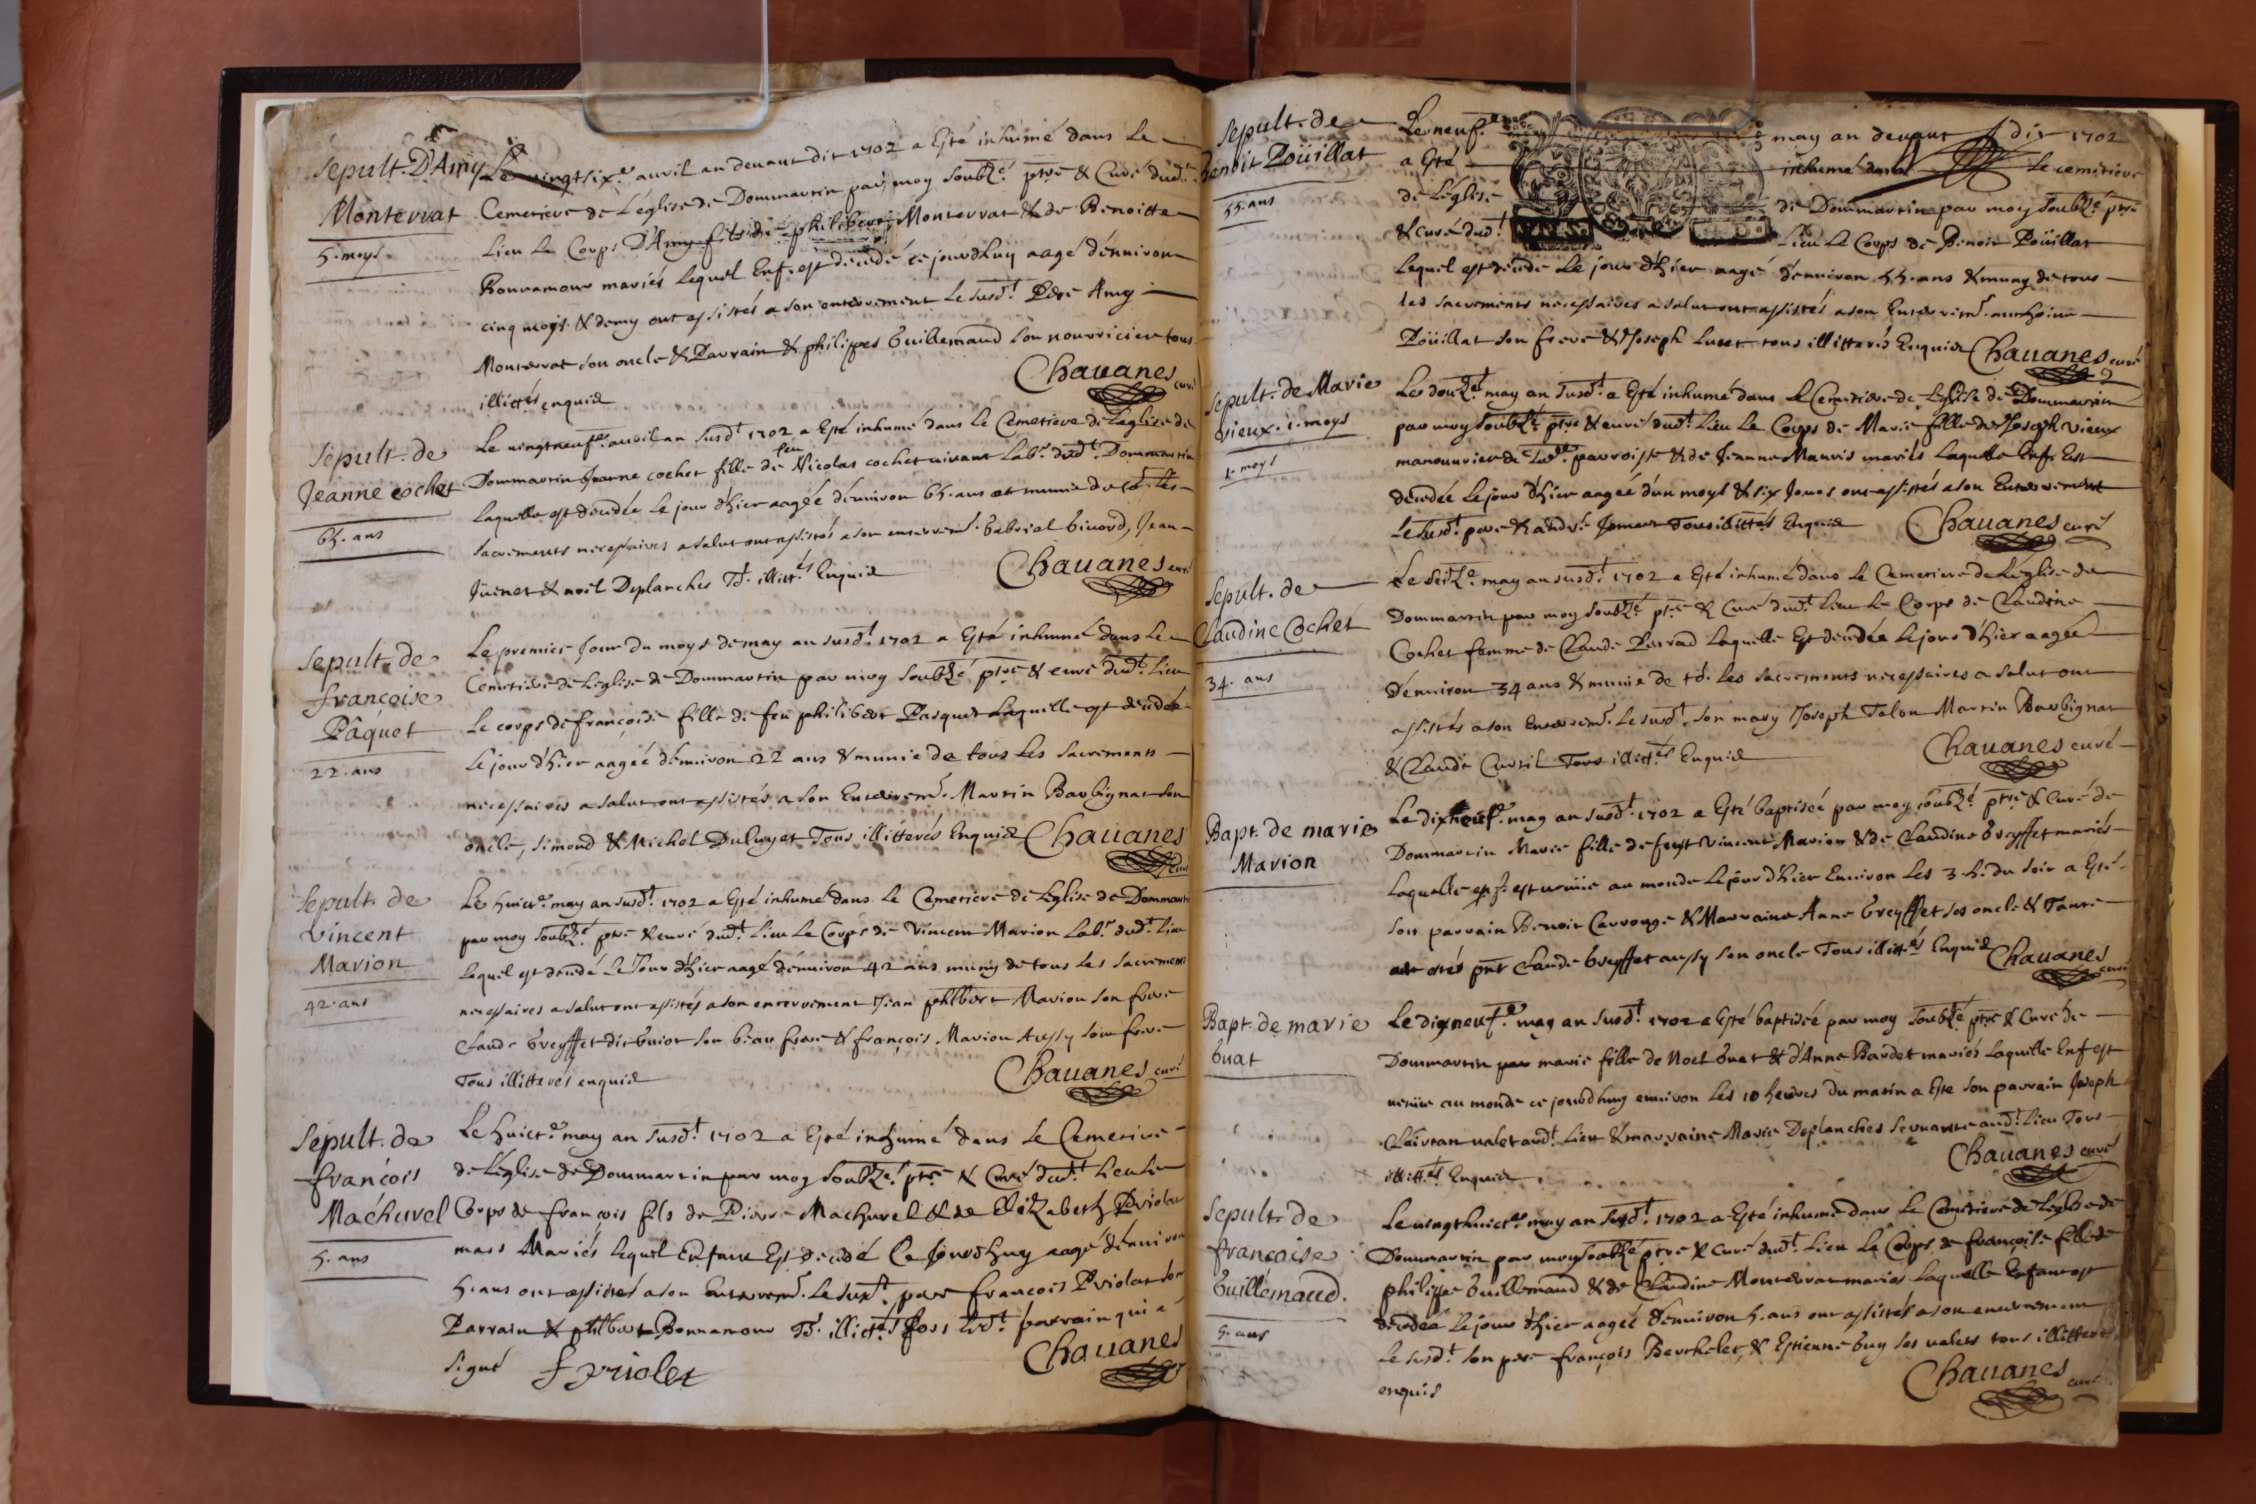 Sépult. D'Amy
Monterrat
5. moys
Le vingt six.e auril an deuant dit 1702 a Esté inhumé dans Le
Cemetiere de L'église de Dommartin par moy soubz.é ptre & Curé dud.t
Lieu Le Corps D'Amy fils de philibert Monterrat & de Benoitte
Bonnamour mariés lequel Enf. est decedé ce jourdhuy aagé d'enuiron
cinq moys & demy ont assistés a son enterrement le susd.t Pere Amy
Monterrat son oncle & Parrain & philippes Guillemaud son nourricier tous
illittés enquis
Chauanes curé
Sépult. de
Jeanne cochet
65. ans
Le uingtneuf.e auril an susd.t 1702 a Esté inhumé dans le Cemetiere de L'aglise de
Dommartin Jeanne cochet fille de feu Nicolas cochet uiuant Lab.r dud.t Dommartin
laquelle est decedée le jour d'hier aagée d'enuiron 65. ans et munie de td. les
sacrements necessaires a salut ont assistés a son enterrem.t Gabrial Giuord, Jean
Juenet & noël Deplanches Td. illitt.és Enquis
Chauanes curé
Sepult. de
françoise
Pâquet
22. ans
Le premier Jour du moys de may an susd.t 1702 a Esté inhumé dans Le
Cemetiere de L'eglise de Dommartin par moy soubz.é ptre & curé dud.t Lieu
Le corps de françoise fille de feu philibert Pasquet Laquelle est decedée
Le jour d'hier aageé d'enuiron 22 ans & munie de tous Les sacrements
necessaires a salut ont assistés a son Enterrem.t Martin Barbignat son
oncle, simond & Michel Duluyet Tous illitterés Enquis Chauanes
curé
Sepult. de
Vincent
Marion
42. ans
Le huict.e may an susd.t 1702 a Esté inhumé dans Le Cemetiere de L'eglise de Dommartin
par moy soubz.é ptre & curé dud.t Lieu Le Corps de Vincent Marion Lab.r dud.t Lieu
Lequel est decedé Le Jour d'hier aagé d'enuiron 42 ans muny de tous Les sacrements
necessaires a salut ont assistés a son enterrement Jean phlbert Marion son frere
Claude Greyffet dit Guiot son beau frere & françois Marion Aussy son frere
Tous illitterés enquis
Chauanes curé
Sépult. de
françois
Machurel
5. ans
Le huict.e may an susd.t 1702 a Esté inhumé dans Le Cemetiere
de L'église de Dommartin par moy soubz.é ptre & Curé dud.t Lieu Le
Corps de françois fils de Pierre Machurel & de Elizabeth Priolat
mars Mariés lequel Enfant Est decedé Ce Jourdhuy aagé d'enuiron
5. ans ont assistés a son Enterrem.t le susd.t pere françois Priolat son
Parrain & phlbert Bonnamour Td. illittés fors led.t parrain qui a
signé f priolet
Chauanes
Sepult. de
Benoit Poüillat
55. ans
Le neuf.e may an deuant dit 1702
a Esté inhumé dans le cemetiere
de L'église de Dommartin par moy soubz.é ptre
& curé dud.t Lieu Le Corps de Benoit Poüillat
Lequel est decede Le jour d'hier aagé d'enuiron 55. ans & muny de tous
les sacrements necessaires a salut ont assistés a son Enterrem.t anthoine
Poüillat son frere & Joseph Luset tous illitterés Enquis Chauanes curé
Sepult. de Marie
vieux. 1. moys
1. moys
Le douz.e may an susd.t a Esté inhumé dans Le Cemetiere de L'eglise de Dommartin
par moy soubz.é ptre & curé dud.t Lieu Le Corps de Marie fille de Joseph vieux
manouurier de Lad.e parroisse & de Jeanne Mauris mariés Laquelle Enf. Est
decedée Le jour d'hier aageé d'un moys & six Jours ont assistés a son Enterrement
Le susd.t pere & andré Tous illittés Enquis Chauanes curé
Sepult. de
Claudine Cochet
34. ans
Le seiz.e may an susd.t 1702 a Esté inhumé dans Le Cemetiere de L'église de
Dommartin par moy soubz.é ptre & Curé dud.t Lieu Le Corps de Claudine
Cochet femme de Claude Perrad laquelle Est decedée le jour d'hier aageé
d'enuiron 34 ans & munie de td. les sacrements necessaires a salut ont
assistés a son Enterrem.t Le susd.t son mary Joseph Talon Martin Barbignat
& Claude Curtil Tous illitt.és Enquis
Chauanes curé
Bapt. de marie
Marion
Le dixneuf.e may an susd.t 1702 a Esté baptiseé par moy soubz.é ptre & curé de
Dommartin Marie fille de feust Vincent Marion & de Claudine Greyffet mariés
Laquelle est uenüe au monde Le jour d'hier Enuiron Les 3 h. du soir a Esté
son parrain Benoit Carronge & Marraine Anne Greyffet ses oncle & Tante
ont estés pnt Claude Greyffet aussy son oncle Tous illittés Enquis Chauanes
curé
Bapt. de marie
Guat
Le dixneuf.e may an susd.t 1702 a Esté baptiseé par moy soubz.é ptre & Curé de
Dommartin par marie fille de Noel Guat & d'Anne Bardet mariés Laquelle Enf. est
uenüe au monde ce jourdhuy enuiron Les 10 heures du matin a Este son parrain Joseph
valet aud.t Lieu & marraine Marie Deplanches seruante aud.t Lieu Tous
illittés Enquis
Chauanes curé
Sepult. de
francoise
Guillemaud.
5. ans
Le uingthuict.e may an susd.t 1702 a Esté inhumé dans Le Cemetiere de L'église de
Dommartin par moy soubz.é ptre & Curé dud.t Lieu Le Corps de françoise fille de
philippe Guillemaud & de Claudine Monterrat mariés Laquelle Enfant est
decedée Le jour d'hier aageé d'enuiron 5. ans ont assistés a son enterrement
Le susd.t son pere françois Berthelet, & Estienne Guy ses ualets tous illitterés
enquis
Chauanes curé